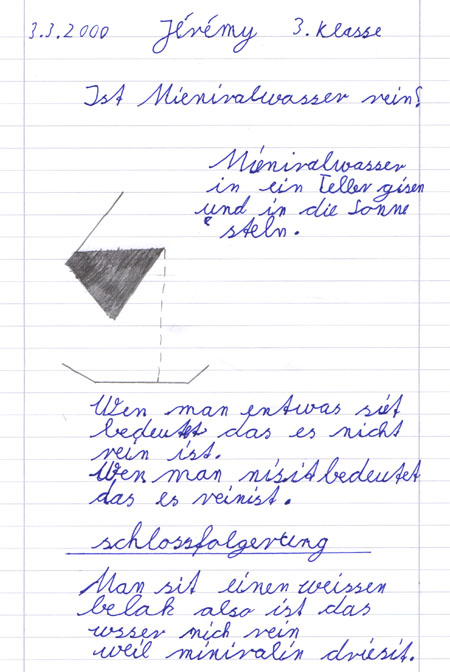 3.3.2000 Jérémy 3. Klasse
Ist Mieniralwasser rein?
Miéniralwasser
in ein Teller gisen
und in die Sonne
steln.
Wen man entwas siét
bedeutet das es nicht
rein ist.
Wen man nisit bedeutet
das es reinist.
schlossfolgerung
Man sit einen weissen
belak also ist das
wsser nich rein
weil miniralin driésit.